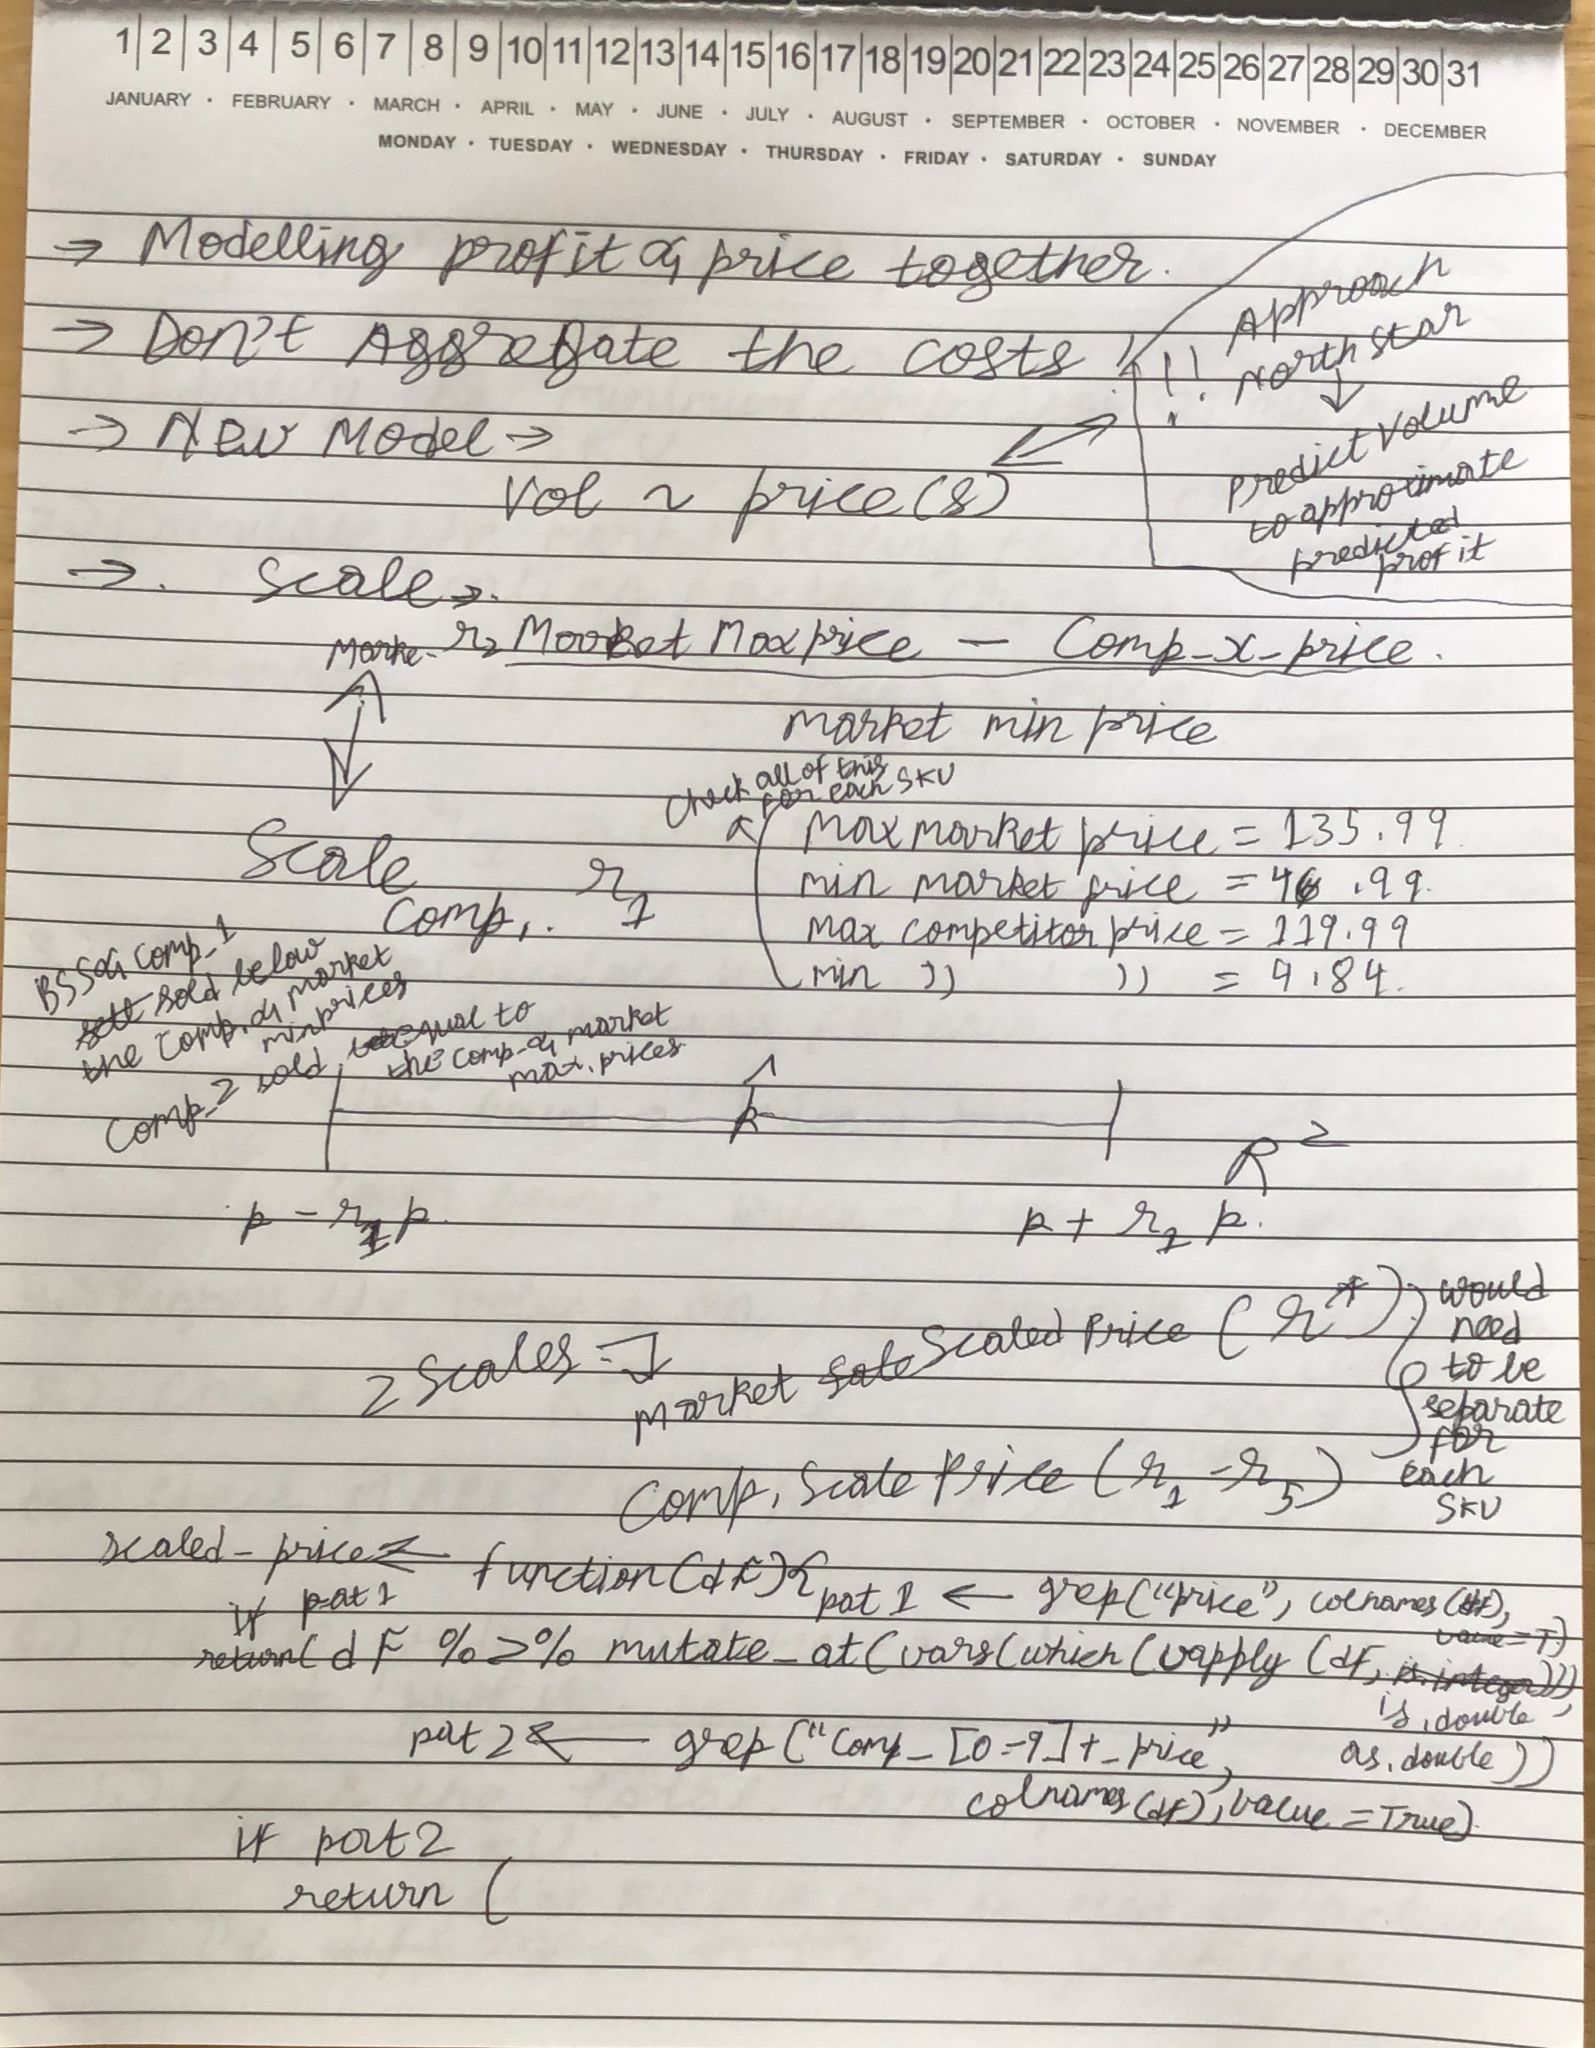 1 2 3 4 5 6 7 8 9 10 11 12 13 14 15 16 17 18 19 20 21 22 23 24 25 26 27 28 29 30 31
JANUARY · FEBRUARY · MARCH · APRIL · MAY · JUNE · JULY · AUGUST · SEPTEMBER · OCTOBER · NOVEMBER · DECEMBER
MONDAY · TUESDAY · WEDNESDAY · THURSDAY · FRIDAY · SATURDAY · SUNDAY
→ Modelling profit & price together.
→ Don't Aggregate the costs !!!
Approach
North Star
↓
Predict Volume
to approximate
predicted
profit
→ New Model →
Vol ~ price(s)
→. Scale →.
Marke- r2 Market Max price - Comp_x_price.
market min price
Check all of this
for each SKU
Max market price = 135.99
min market price = 46.99.
Max competitor price = 119.99
min )) )) = 9.84.
Scale
Comp,. r1
BSS & Comp_1
sold below
the Comp. & market
min prices
Comp_2 sold equal to
the comp- & market
max. prices
p
R2
p - r1 p.
p + r1 p.
2 Scales =]
market Scaled Price (r*)
Comp, Scale Price (r1 - r5)
would
need
to be
separate
for
each
SKU
scaled_price ← function(df){
pat 1 ← grep("price", colnames(df),
value = T)
if pat 1
return(df %>% mutate_at(vars(which(vapply(df, is.integer))),
is.double
as.double))
pat 2 ← grep("Comp_[0-9]+_price",
colnames(df), value = True)
if pat 2
return (